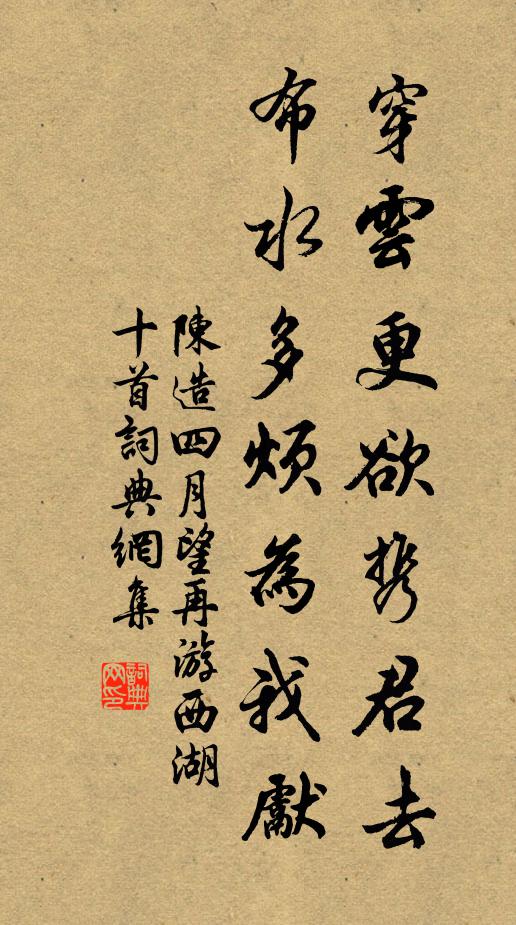 穿雲更欲携君去
布水多煩為我獻
陳造四月望再游西湖
十首詞典網集
詞典网印